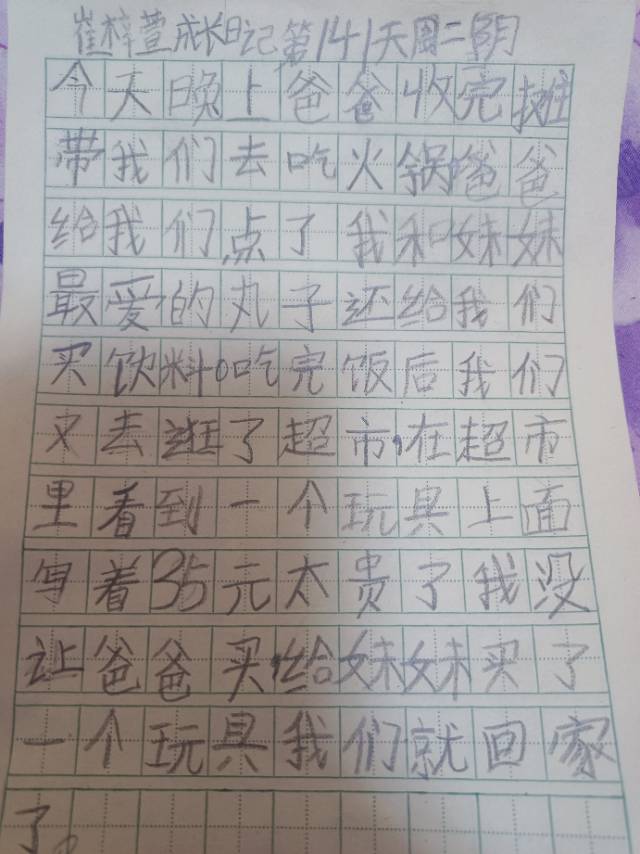 崔梓萱成长日记第141天周二阴
今天晚上爸爸收完摊
带我们去吃火锅,爸爸
给我们点了我和妹妹
最爱的丸子还给我们
买饮料。吃完饭后我们
又去逛了超市,在超市
里看到一个玩具上面
写着35元太贵了我没
让爸爸买,给妹妹买了
一个玩具我们就回家
了。